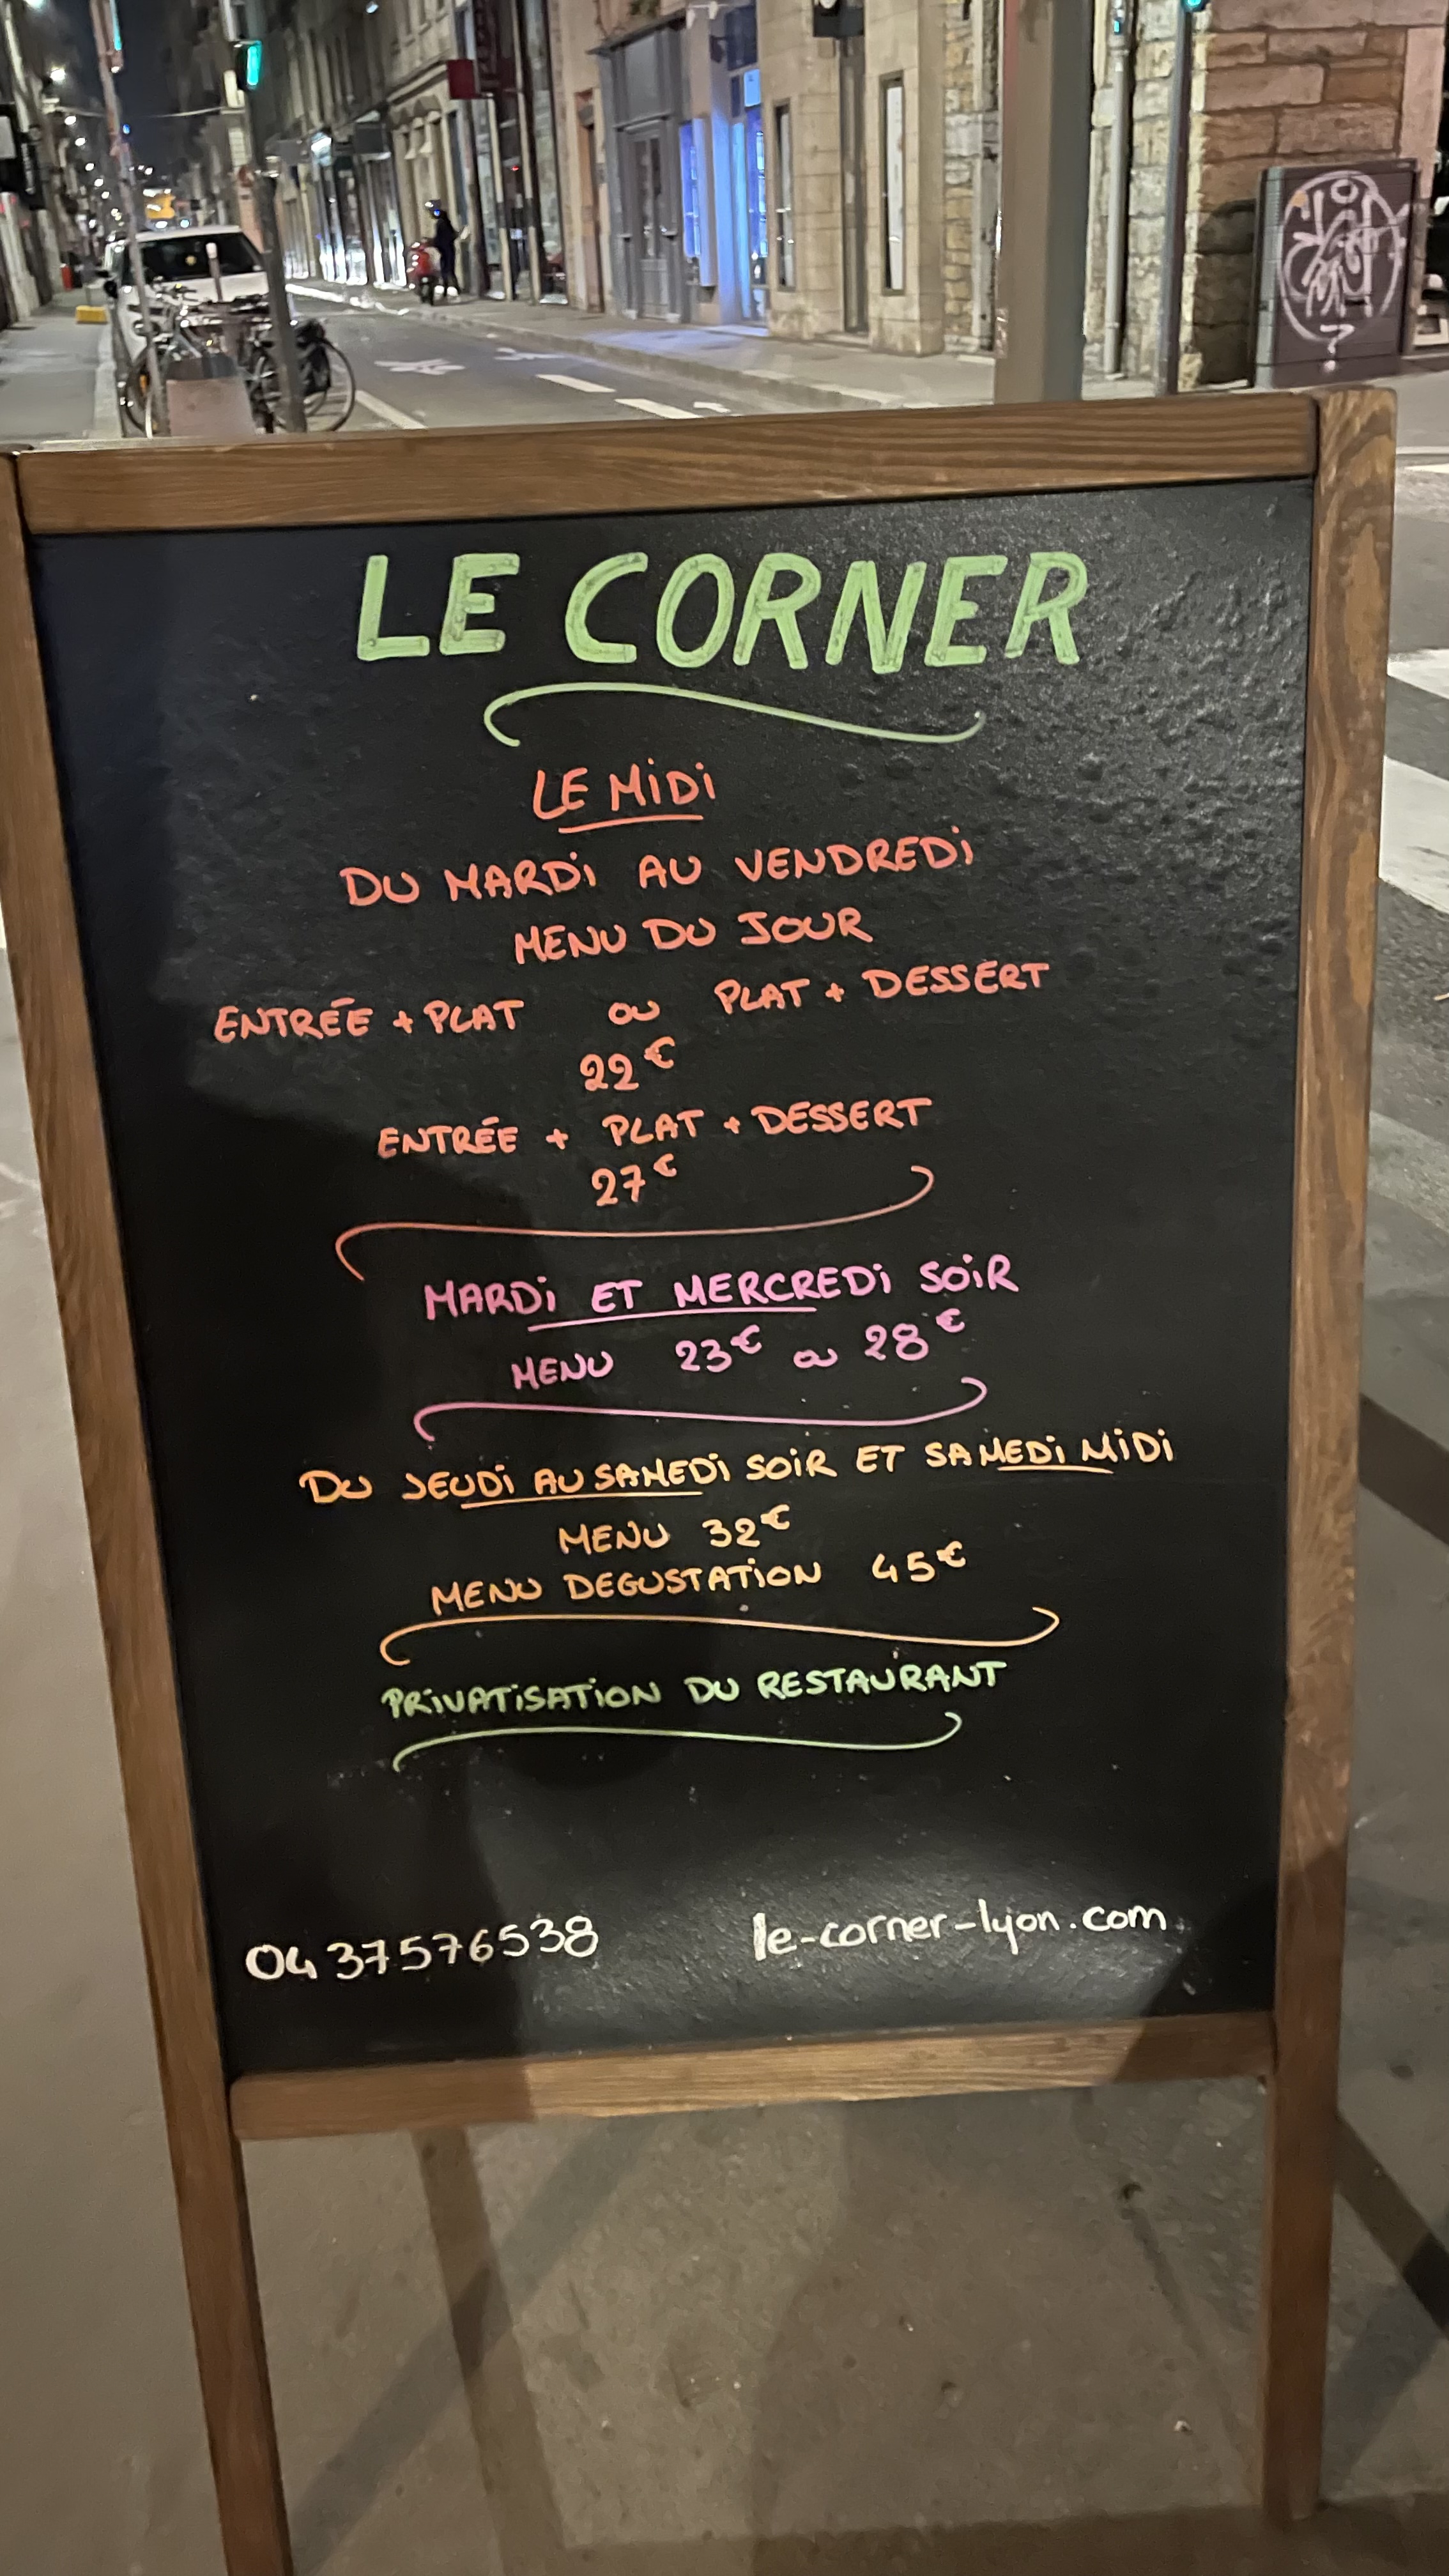 LE CORNER
LE MiDi
DU MARDi AU VENDREDi
MENU DU JOUR
ENTRÉE + PLAT ou PLAT + DESSERT
22€
ENTRÉE + PLAT + DESSERT
27€
MARDi ET MERCREDi SOiR
MENU 23€ ou 28€
DU JEUDi AU SAMEDi SOiR ET SAMEDi MiDi
MENU 32€
MENU DEGUSTATiON 45€
PRiVATiSATiON DU RESTAURANT
04 37576538 le-corner-lyon.com